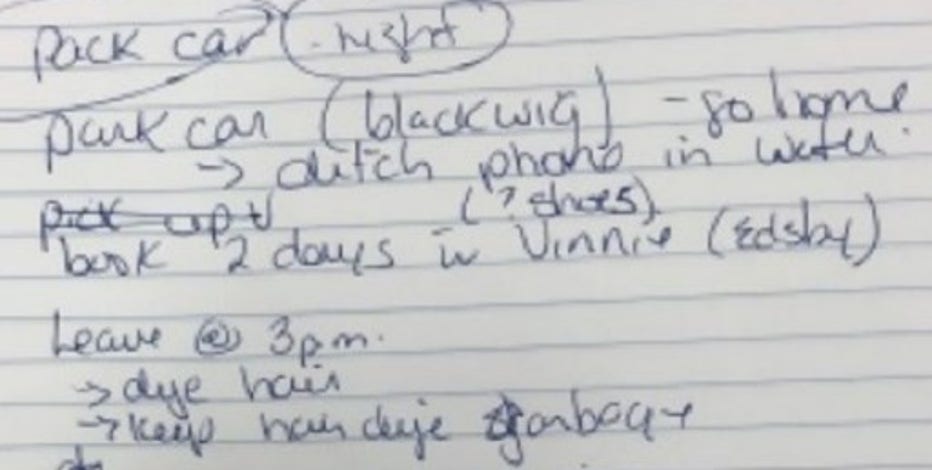 pack car (night)
park car (black wig) - go home
→ ditch phone in water.
pick up
(? shoes)
book 2 days in Vinnie (Edsby)
Leave @ 3pm.
→ dye hair
→ keep hair dye garbage